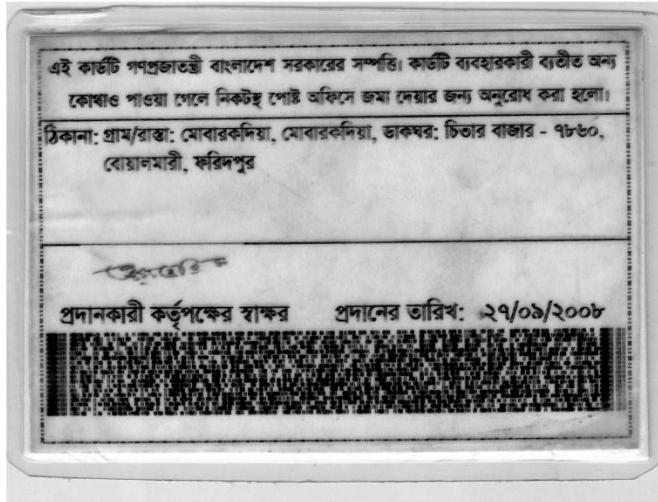 এই কার্ডটি গণপ্রজাতন্ত্রী বাংলাদেশ সরকারের সম্পত্তি। কার্ডটি ব্যবহারকারী ব্যতীত অন্য
কোথাও পাওয়া গেলে নিকটস্থ পোষ্ট অফিসে জমা দেয়ার জন্য অনুরোধ করা হলো।
ঠিকানা: গ্রাম/রাস্তা: মোবারকদিয়া, মোবারকদিয়া, ডাকঘর: চিতার বাজার - ৭৮৬০,
বোয়ালমারী, ফরিদপুর
প্রদানকারী কর্তৃপক্ষের স্বাক্ষর প্রদানের তারিখ: ২৭/০৯/২০০৮